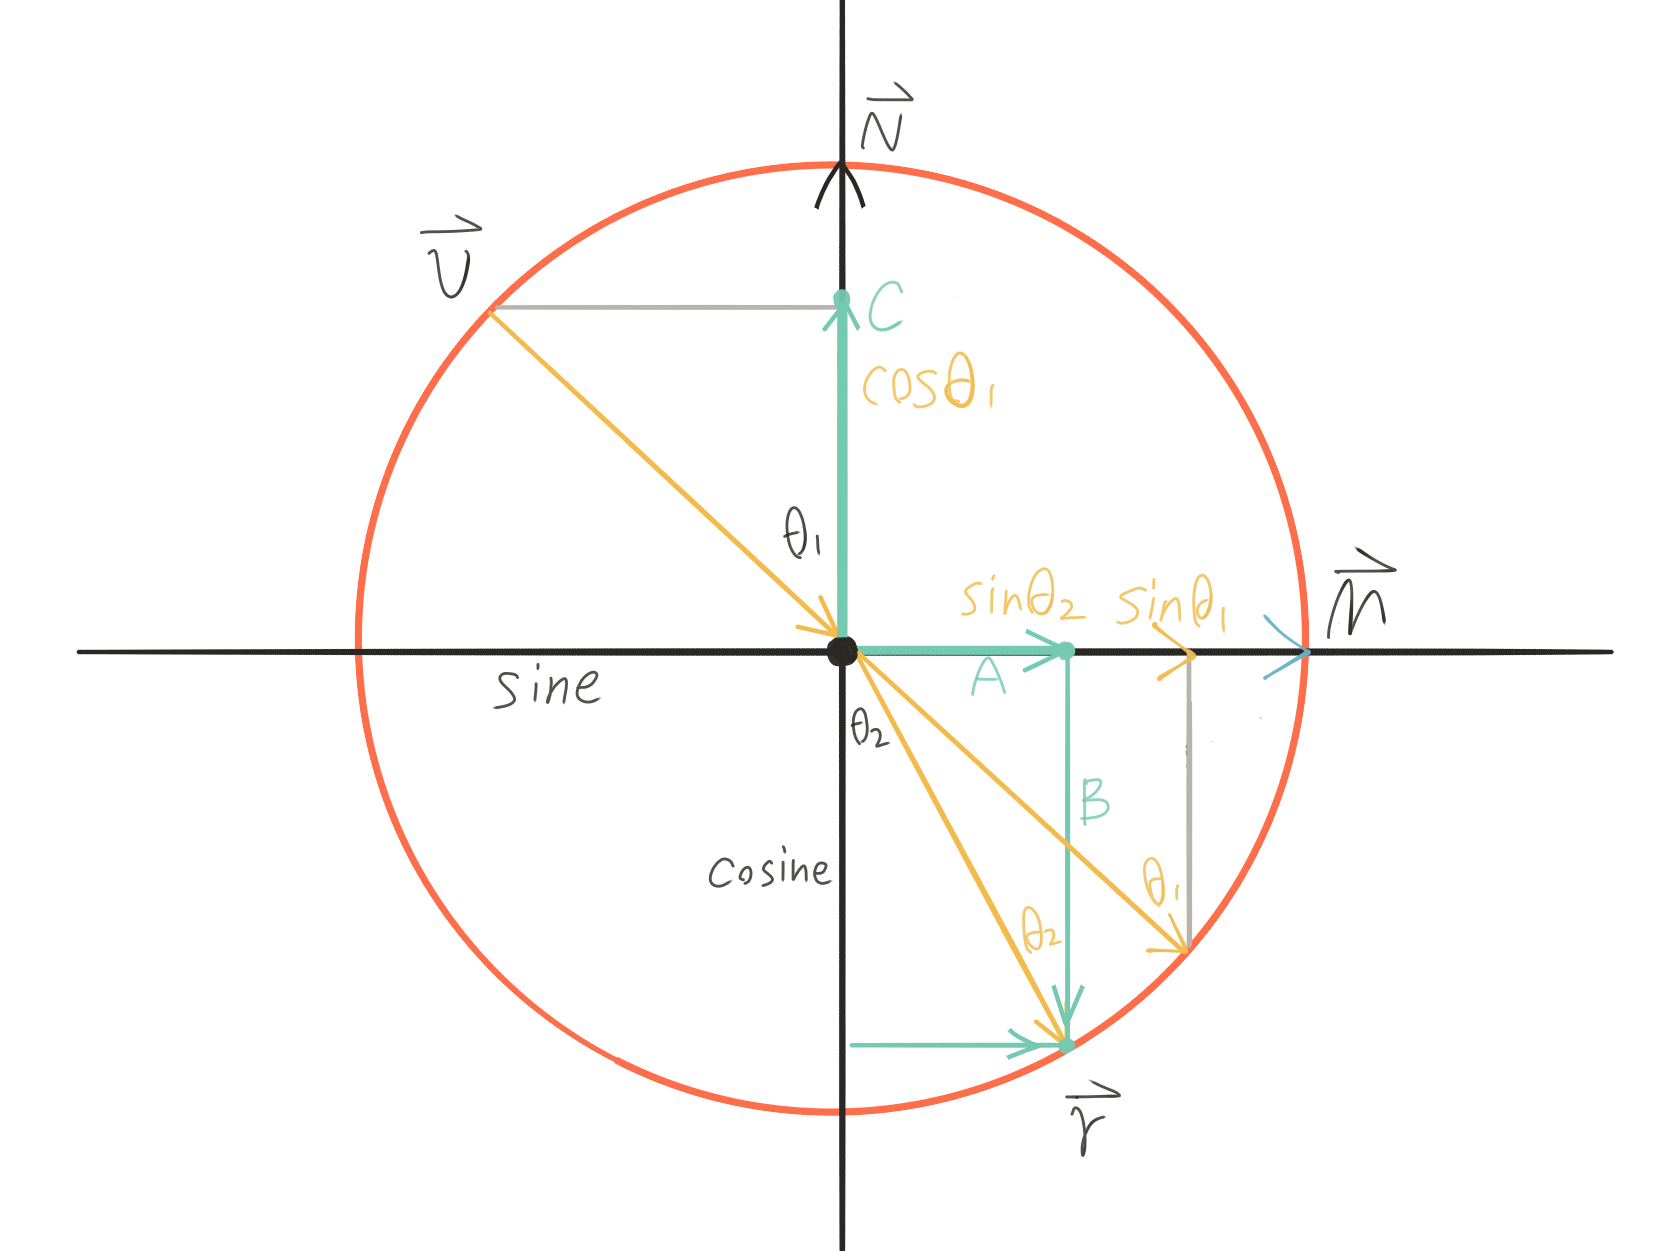 N⃗
v⃗
C
cosθ₁
θ₁
M⃗
sinθ₂
sinθ₁
A
sine
θ₂
B
cosine
θ₁
θ₂
r⃗